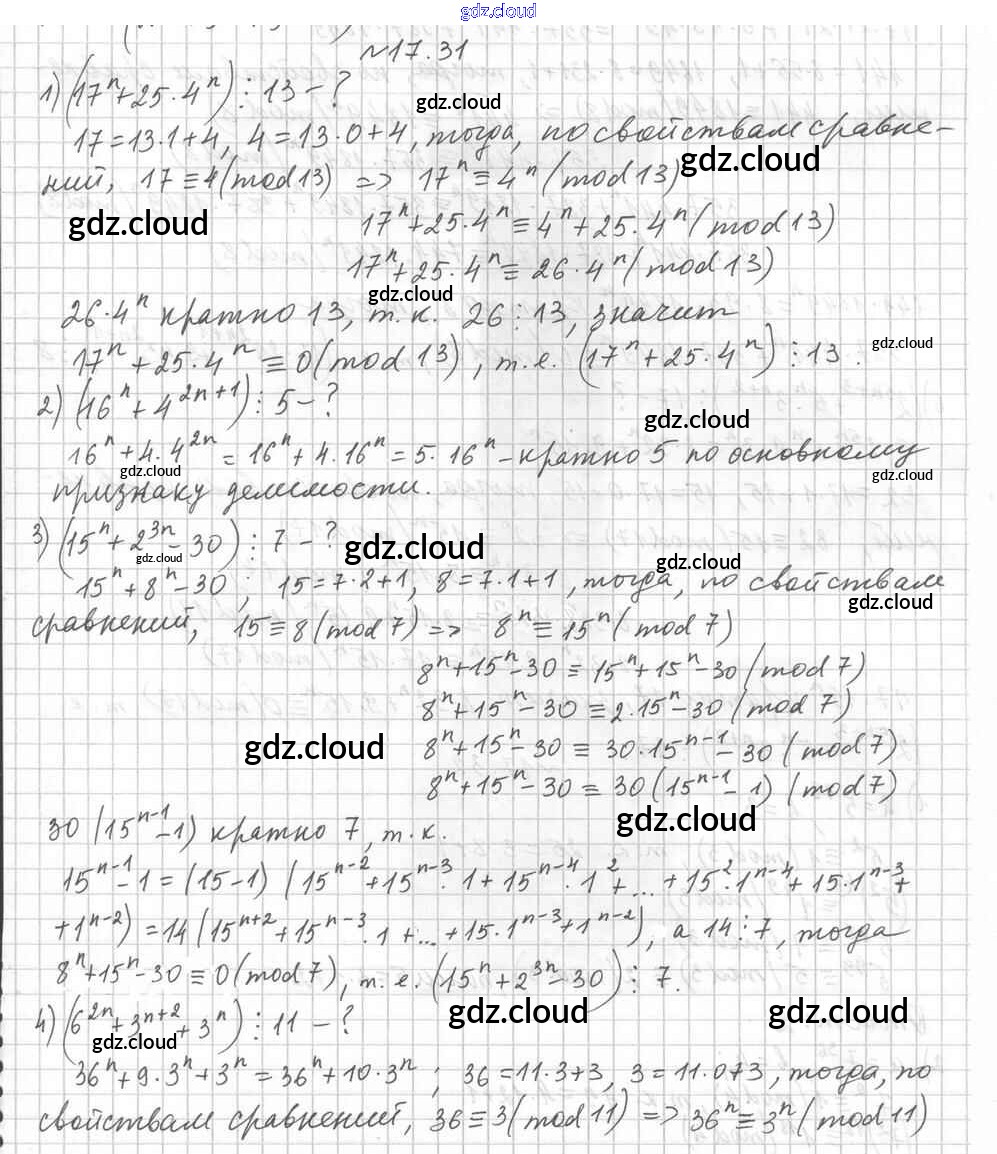 gdz.cloud
№17.31
1) (17ⁿ+25·4ⁿ)⋮13-?
gdz.cloud
17=13·1+4, 4=13·0+4, тогда, по свойствам сравне-
gdz.cloud
ний, 17≡4(mod13) => 17ⁿ≡4ⁿ(mod13)
gdz.cloud
17ⁿ+25·4ⁿ≡4ⁿ+25·4ⁿ(mod13)
17ⁿ+25·4ⁿ≡26·4ⁿ(mod13)
gdz.cloud
26·4ⁿ кратно 13, т.к. 26⋮13, значит
17ⁿ+25·4ⁿ≡0(mod13), т.е. (17ⁿ+25·4ⁿ)⋮13.
gdz.cloud
2) (16ⁿ+4²ⁿ⁺¹)⋮5-?
gdz.cloud
16ⁿ+4·4²ⁿ=16ⁿ+4·16ⁿ=5·16ⁿ-кратно 5 по основному
gdz.cloud
gdz.cloud
признаку делимости.
3) (15ⁿ+2³ⁿ-30)⋮7-?
gdz.cloud
gdz.cloud
gdz.cloud
15ⁿ+8ⁿ-30; 15=7·2+1, 8=7·1+1, тогда, по свойствам
gdz.cloud
сравнений, 15≡8(mod7)=> 8ⁿ≡15ⁿ(mod7)
8ⁿ+15ⁿ-30≡15ⁿ+15ⁿ-30(mod7)
8ⁿ+15ⁿ-30≡2·15ⁿ-30(mod7)
gdz.cloud
8ⁿ+15ⁿ-30≡30·15ⁿ⁻¹-30(mod7)
8ⁿ+15ⁿ-30≡30(15ⁿ⁻¹-1)(mod7)
gdz.cloud
30(15ⁿ⁻¹-1) кратно 7, т.к.
15ⁿ⁻¹-1=(15-1)(15ⁿ⁻²+15ⁿ⁻³·1+15ⁿ⁻⁴·1²+...+15²·1ⁿ⁻⁴+15·1ⁿ⁻³+
+1ⁿ⁻²)=14(15ⁿ⁺²+15ⁿ⁻³·1+...+15·1ⁿ⁻³+1ⁿ⁻²), а 14⋮7, тогда
8ⁿ+15ⁿ-30≡0(mod7), т.е. (15ⁿ+2³ⁿ-30)⋮7.
gdz.cloud
gdz.cloud
4) (6²ⁿ+3ⁿ⁺²+3ⁿ)⋮11-?
gdz.cloud
36ⁿ+9·3ⁿ+3ⁿ=36ⁿ+10·3ⁿ; 36=11·3+3, 3=11·0+3, тогда, по
свойствам сравнений, 36≡3(mod11)=>36ⁿ≡3ⁿ(mod11)